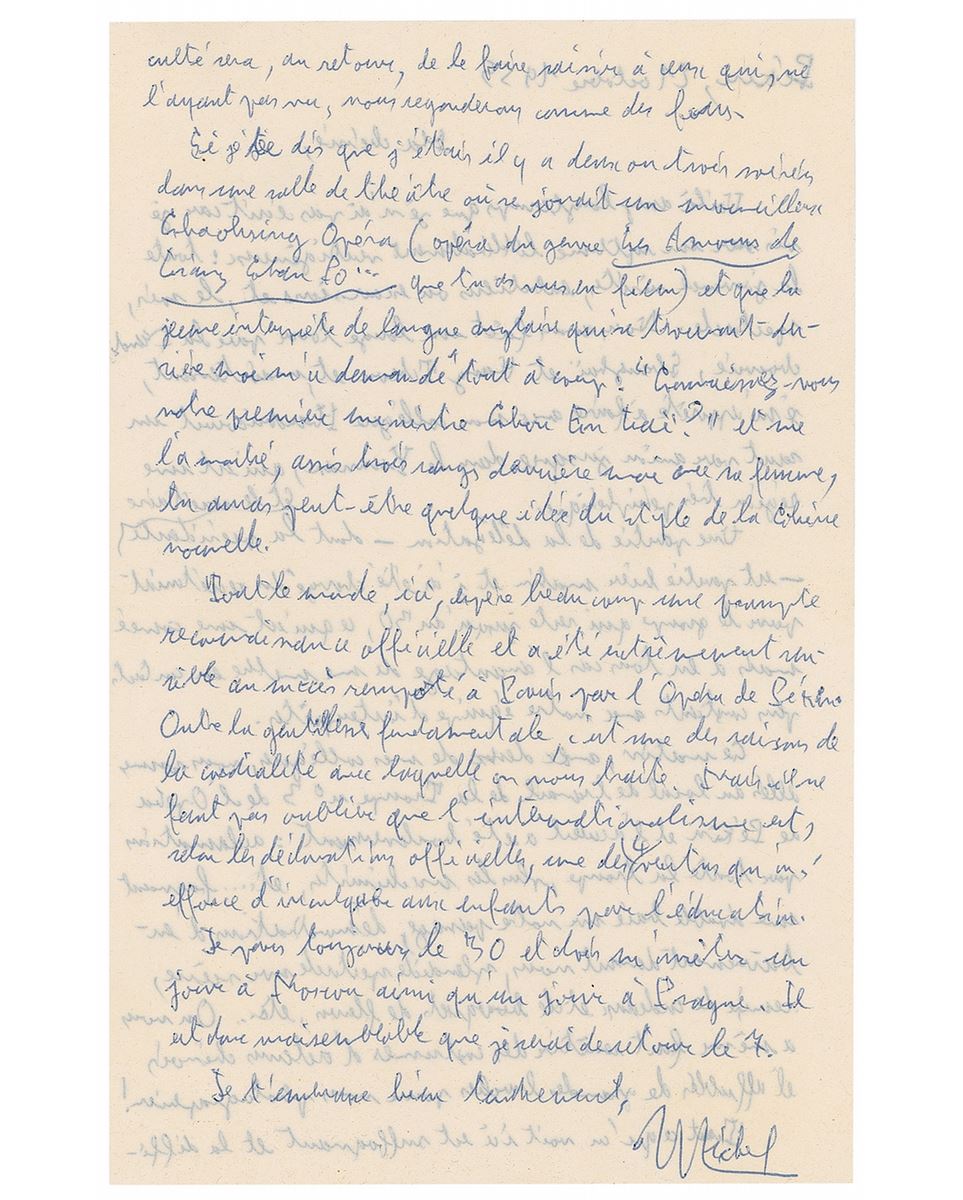 culté sera, au retour, de le faire saisir à ceux qui, ne
l'ayant pas vu, nous regarderons comme des fous.
Si je te dis que j'étais il y a deux ou trois soirées
dans une salle de théâtre où se jouait un merveilleux
Chaohsing Opéra (opéra du genre Les Amours de
Liang Chan Po... que tu as vus en film) et que la
jeune interprète de langue anglaise qui se trouvait der-
rière moi m'a demandé tout à coup : "Connaissez-vous
notre premier ministre Chou En Lai ?" et me
l'a montré, assis trois rangs derrière moi avec sa femme,
tu auras peut-être quelque idée du style de la Chine
nouvelle.
Tout le monde, ici, espère beaucoup une prompte
reconnaissance officielle et a été extrêmement sen-
sible au succès remporté à Paris par l'Opéra de Pékin.
Outre la gentillesse fondamentale, c'est une des raisons de
la cordialité avec laquelle on nous traite. Mais il ne
faut pas oublier que l'internationalisme est,
selon les déclarations officielles, une des 4 vertus qu'on s'
efforce d'inculquer aux enfants par l'éducation.
Je pars toujours le 30 et dois m'arrêter un
jour à Moscou ainsi qu'un jour à Prague. Il
est donc vraisemblable que je serai de retour le 7.
Je t'embrasse bien tendrement,
Michel